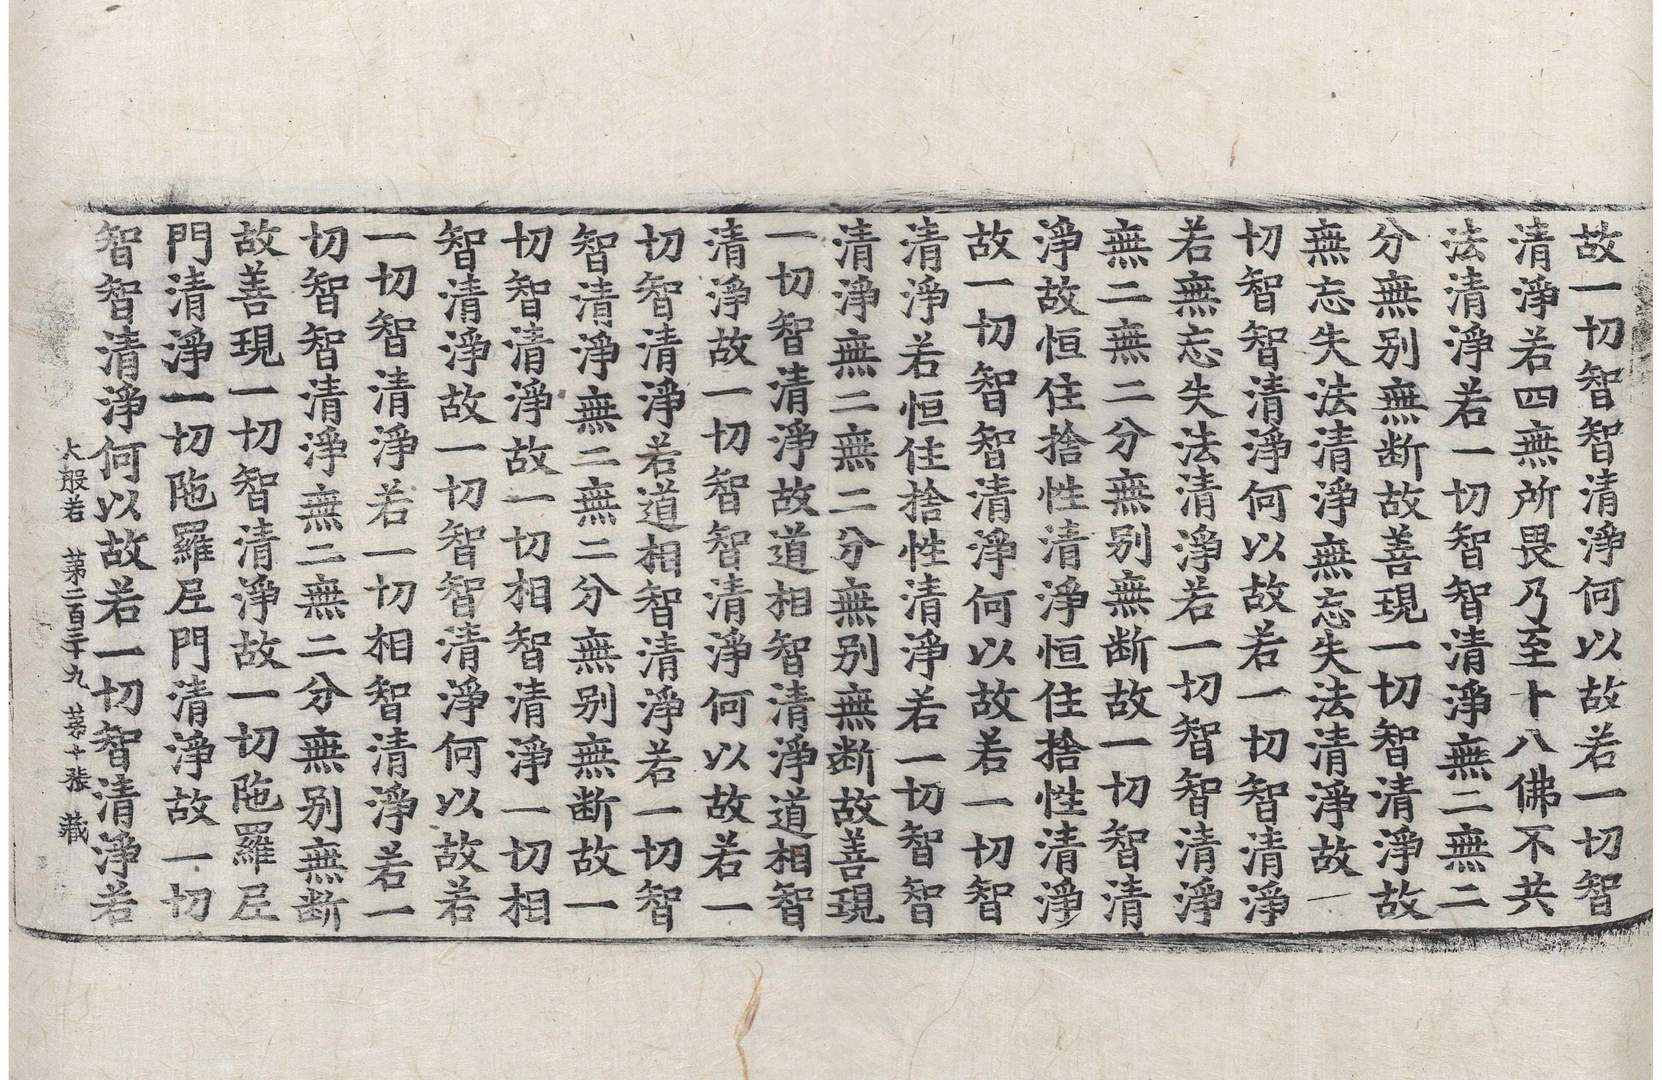 故一切智智清淨何以故若一切智
清淨若四無所畏乃至十八佛不共
法清淨若一切智智清淨無二無二
分無别無断故善現一切智清淨故
無忘失法清淨無忘失法清淨故一
切智智清淨何以故若一切智清淨
若無忘失法清淨若一切智智清淨
無二無二分無别無断故一切智清
淨故恒住捨性清淨恒住捨性清淨
故一切智智清淨何以故若一切智
清淨若恒住捨性清淨若一切智智
清淨無二無二分無别無断故善現
一切智清淨故道相智清淨道相智
清淨故一切智智清淨何以故若一
切智清淨若道相智清淨若一切智
智清淨無二無二分無别無断故一
切智清淨故一切相智清淨一切相
智清淨故一切智智清淨何以故若
一切智清淨若一切相智清淨若一
切智智清淨無二無二分無别無断
故善現一切智清淨故一切陁羅尼
門清淨一切陁羅尼門清淨故一切
智智清淨何以故若一切智清淨若
大般若 第二百三十九 第十張 藏